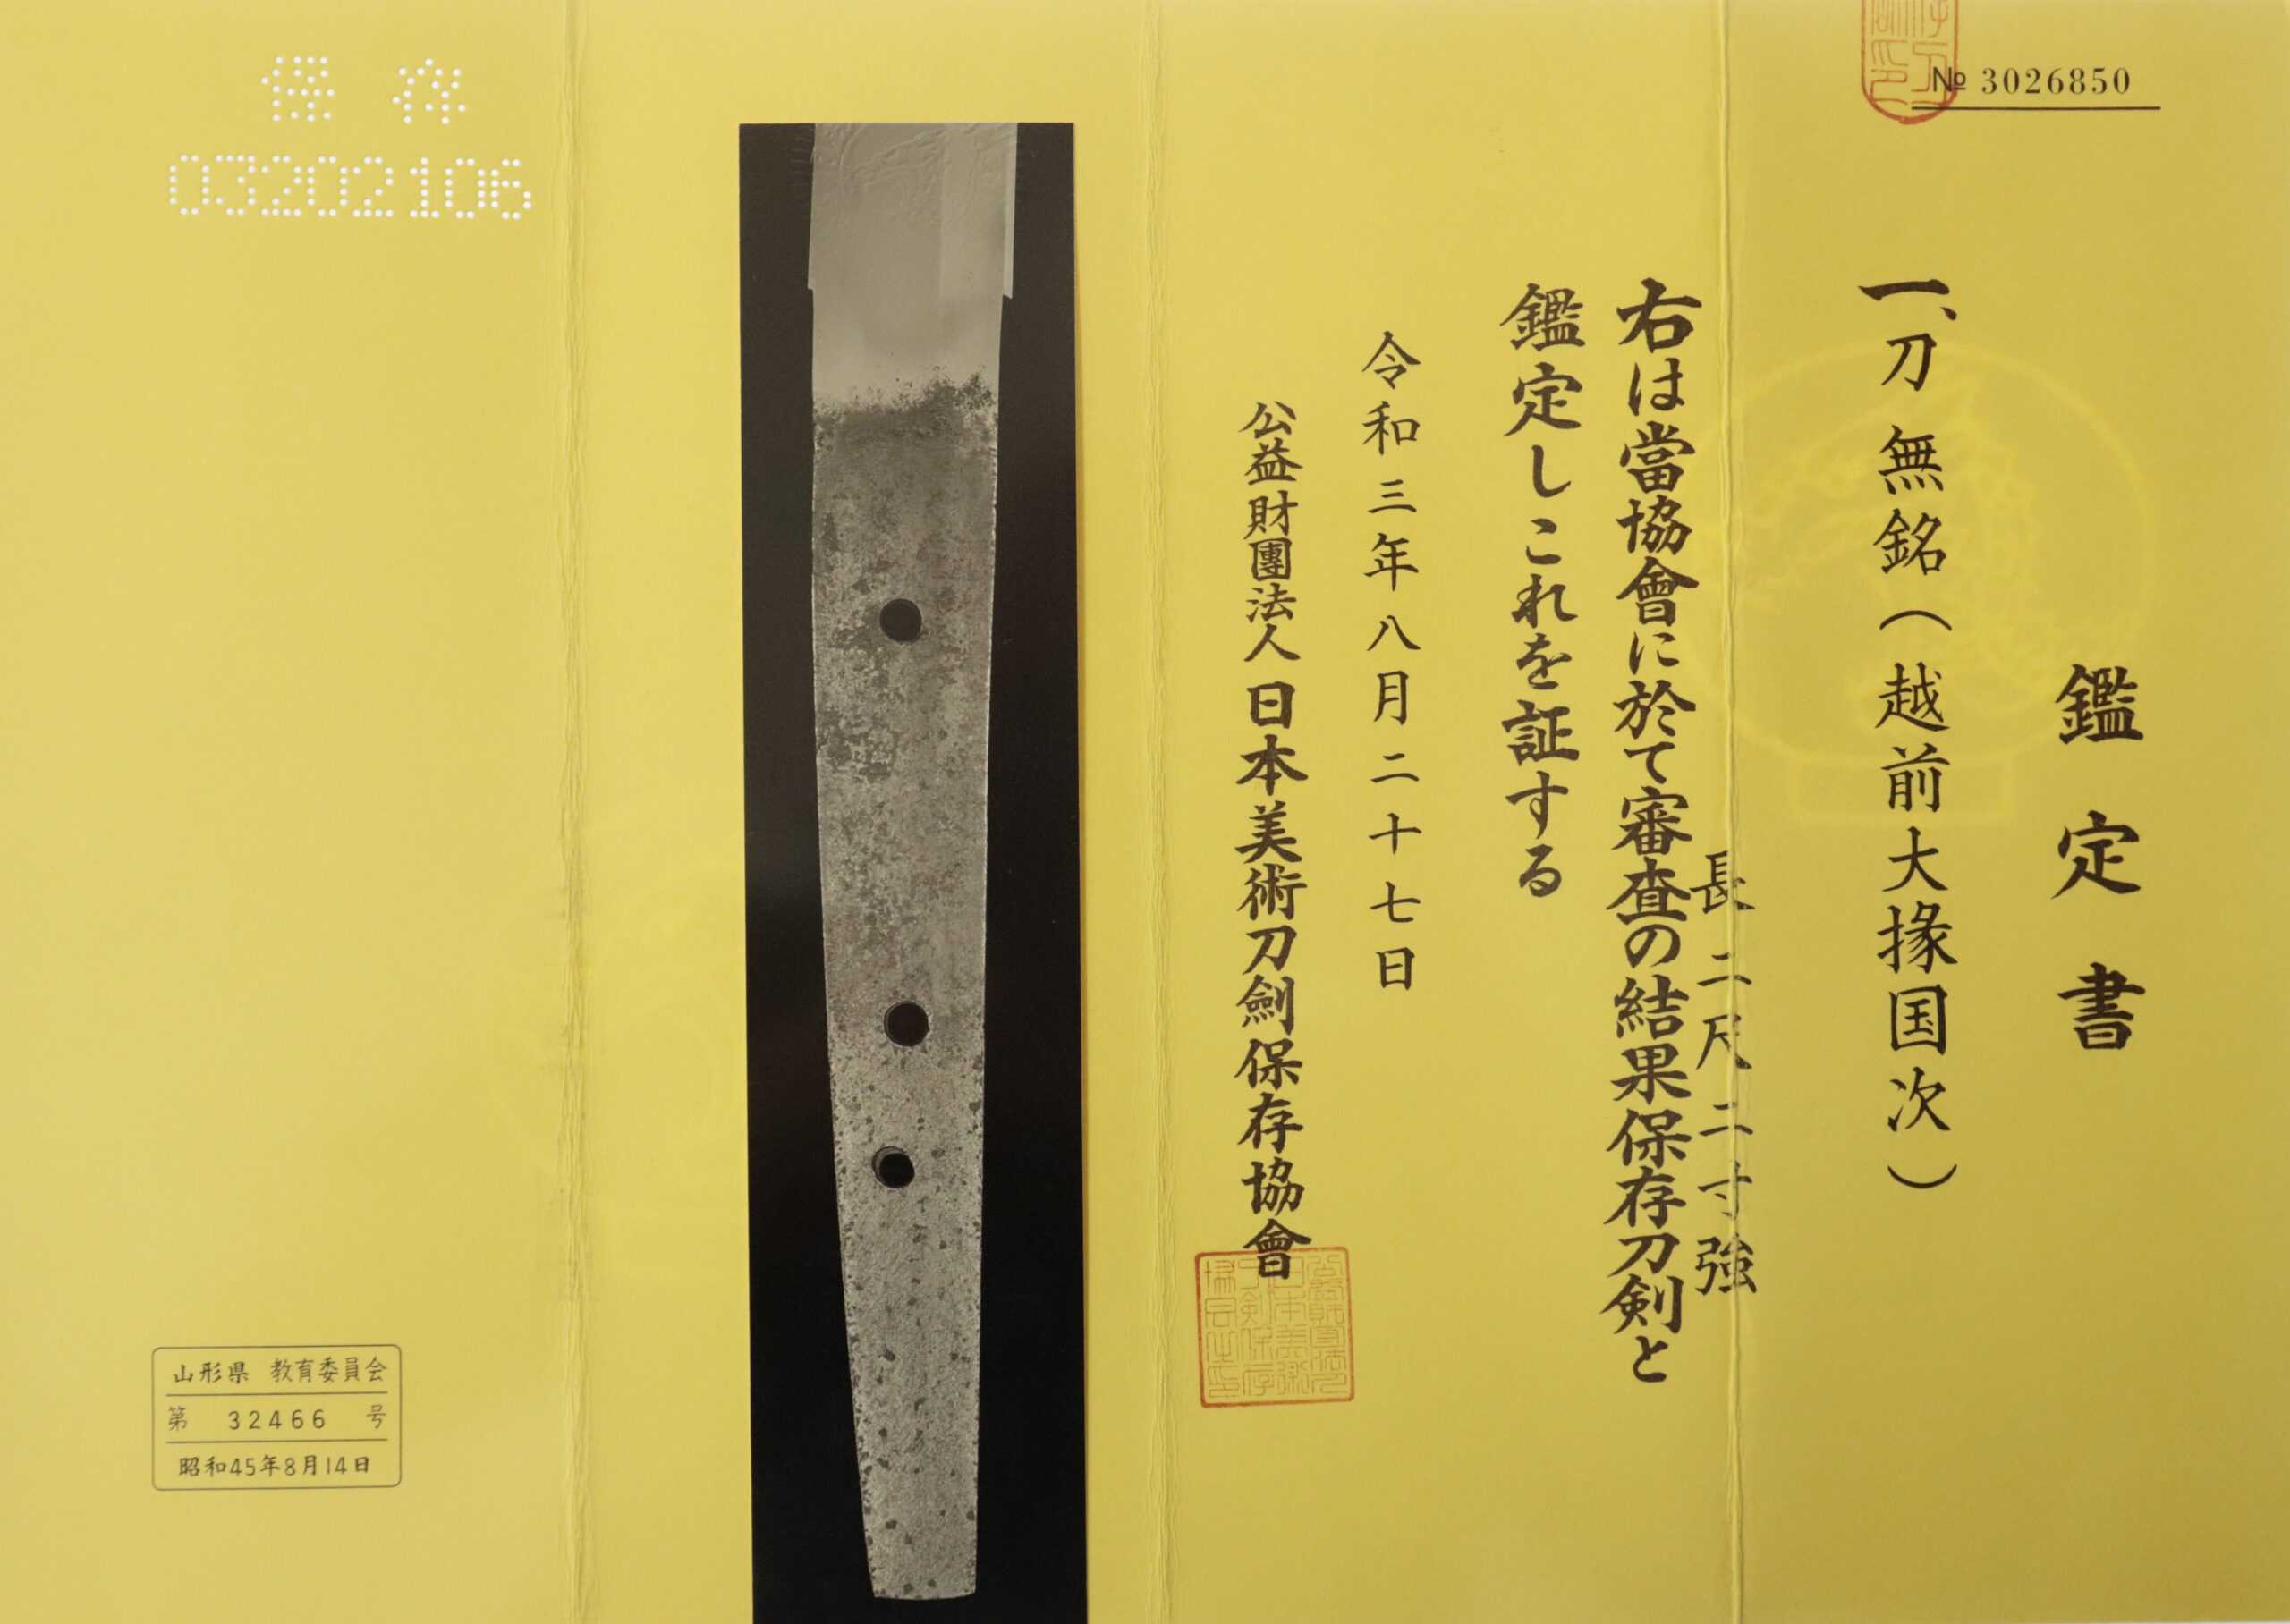 № 3026850
鑑定書
一、刀 無銘(越前大掾国次)
長 二尺二寸強
右は當協會に於て審査の結果保存刀剣と
鑑定しこれを証する
令和三年八月二十七日
公益財團法人 日本美術刀劍保存協會
保存
03202106
山形県 教育委員会
第 32466 号
昭和45年8月14日